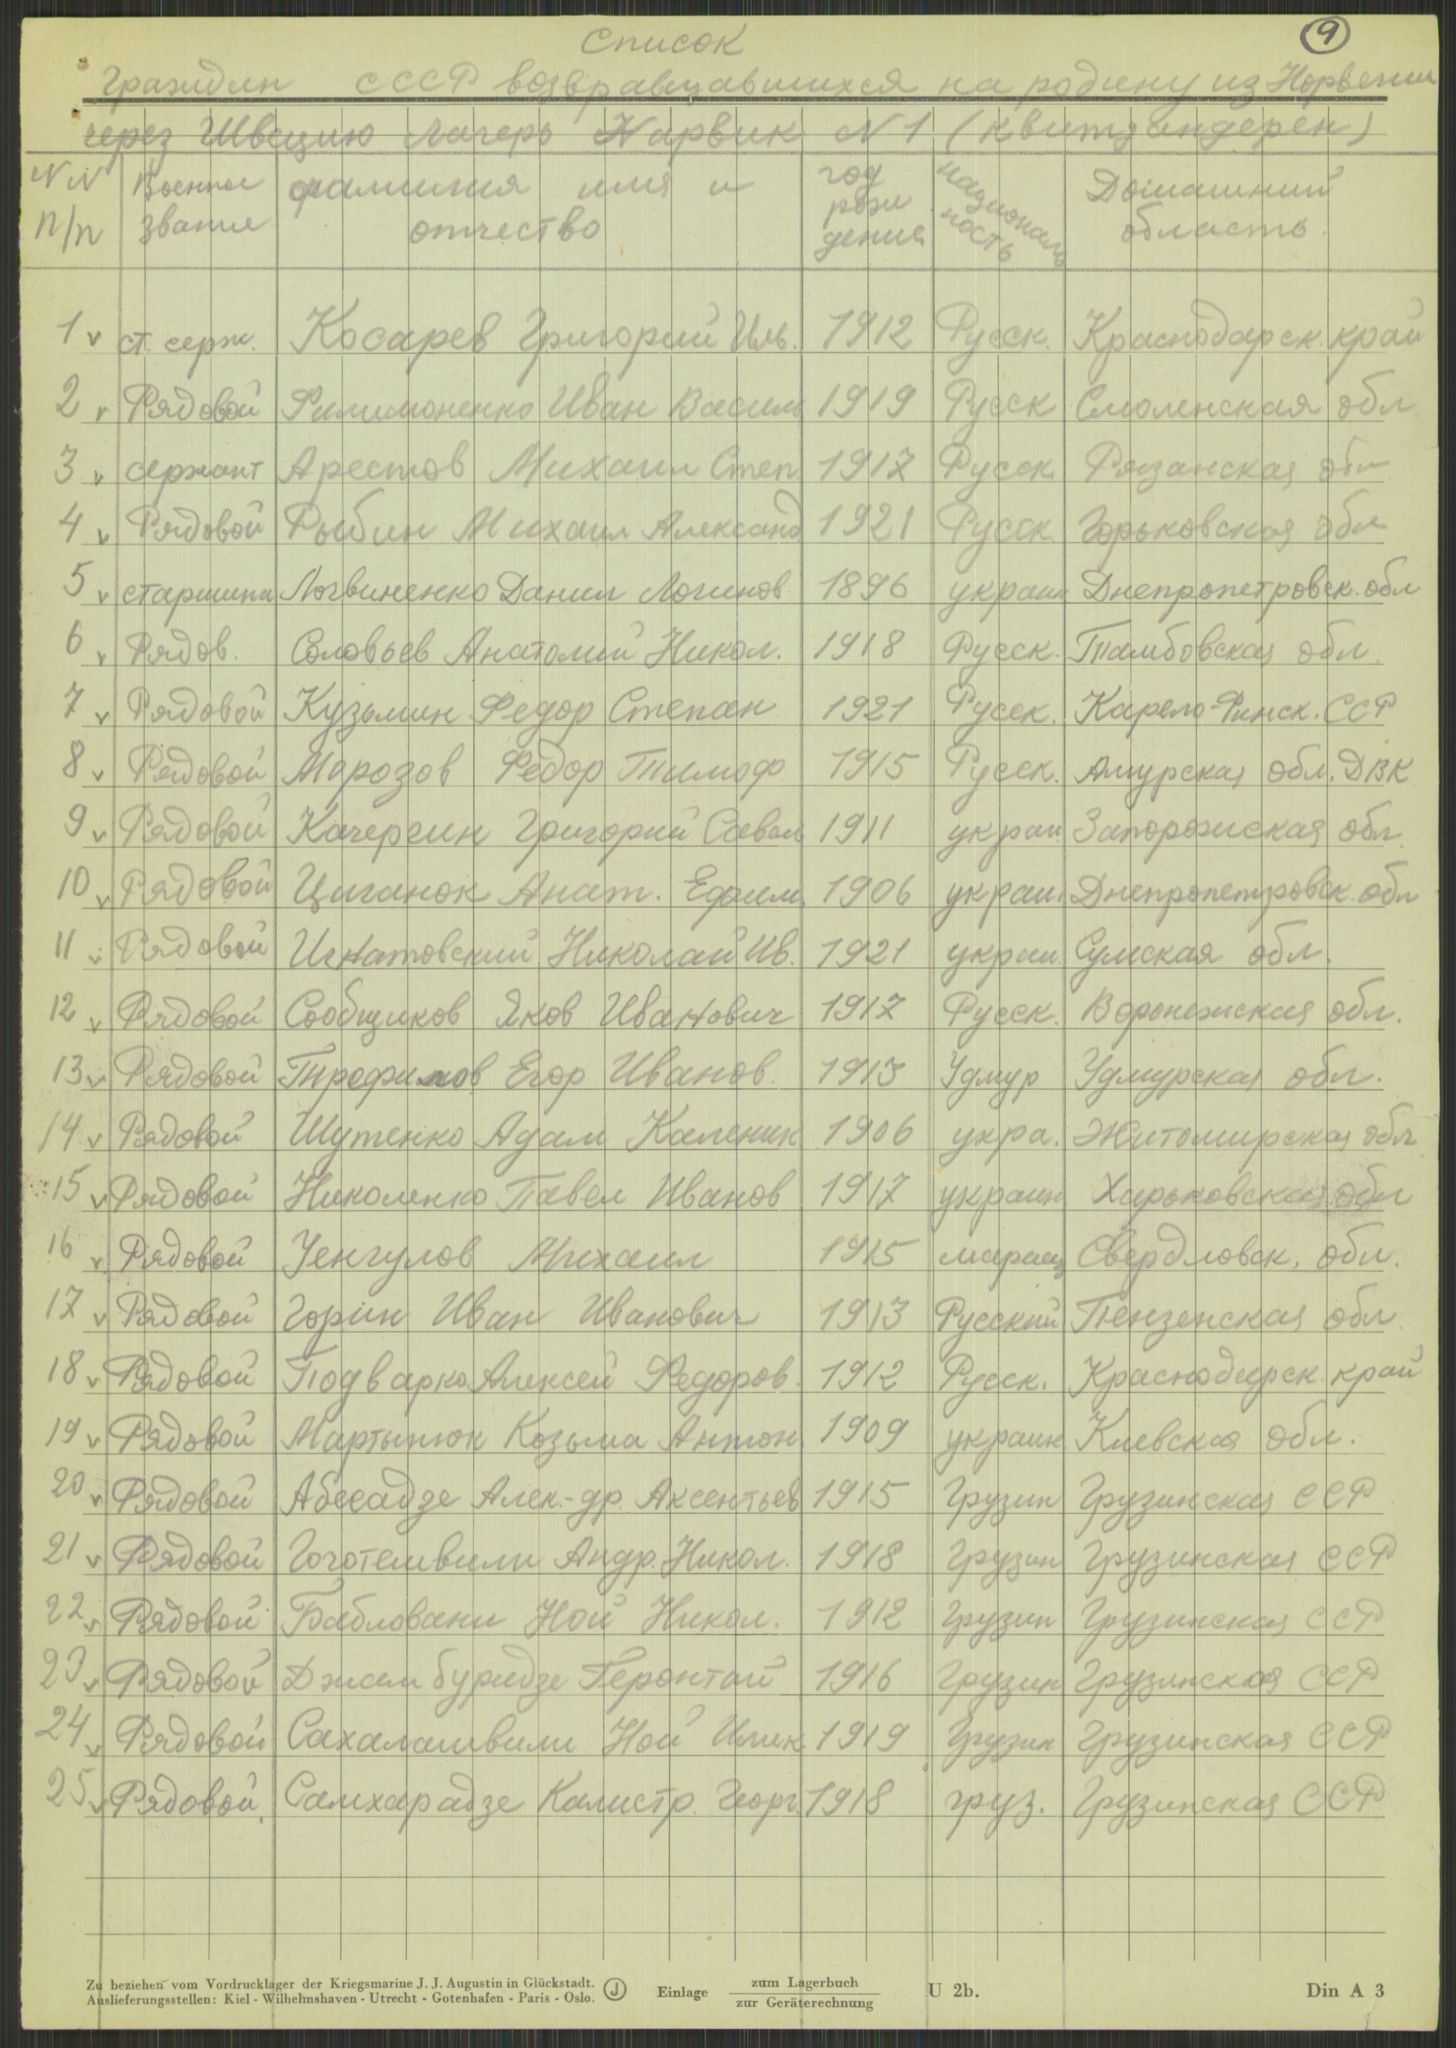 9
Список
граждан СССР возвращавшихся на родину из Норвегии
через Швецию Лагерь Нарвик N 1 (квитдиндерен)
NN п/п Военное звание фамилия имя и отчество год рождения национальность Домашний область.
1 v ст. серж. Косарев Григорий Иль. 1912 Русск. Краснодарск. край
2 v Рядовой Филимоненко Иван Васил 1919 Русск Смоленская обл
3 v сержант Арестов Михаил Степ 1917 Русск Рязанская обл
4 v Рядовой Рыбин Михаил Александ 1921 Русск. Горьковская обл
5 v старшина Логвиненко Данил Логинов 1896 украин Днепропетровск. обл
6 v Рядов. Соловьев Анатолий Никол. 1918 Русск. Тамбовская обл.
7 v Рядовой Кузьмин Федор Степан 1921 Русск. Карело-Финск. ССР
8 v Рядовой Морозов Федор Тимоф 1915 Русск. Амурская обл. ДВК
9 v Рядовой Качергин Григорий Савел 1911 украи Запорожская обл.
10 v Рядовой Циганок Анат. Ефим. 1906 украи. Днепропетровск. обл
11 v Рядовой Игнатовский Николай Ив. 1921 украи Сумская обл.
12 v Рядовой Сообщиков Яков Иванович 1917 Русск. Воронежская обл.
13 v Рядовой Трофимов Егор Иванов. 1913 Удмур Удмурская обл.
14 v Рядовой Шутенко Адам Каленик 1906 укра. Житомирская обл
15 v Рядовой Николенко Павел Иванов 1917 украин Харьковская обл
16 v Рядовой Уенгулов Михаил 1915 Свердловск. обл.
17 v Рядовой Горин Иван Иванович 1913 Русский Пензенская обл.
18 v Рядовой Подварко Алексей Федоров. 1912 Русск. Краснодарск. край
19 v Рядовой Мартынюк Козьма Антон. 1909 украин Киевская обл.
20 v Рядовой Абесадзе Алек-др. Аксентьев 1915 Грузин Грузинская ССР
21 v Рядовой Гоготешвили Андр. Никол. 1918 Грузин Грузинская ССР
22 v Рядовой Бабловани Ной Никол. 1912 Грузин Грузинская ССР
23 v Рядовой Джамбуридзе Геронтий 1916 Грузин Грузинская ССР
24 v Рядовой Сахалашвили Ной Илик 1919 Грузин Грузинская ССР
25 v Рядовой. Самхарадзе Калистр. Георг. 1918 груз. Грузинская ССР
Zu beziehen vom Vordrucklager der Kriegsmarine J. J. Augustin in Glückstadt.
Auslieferungsstellen: Kiel - Wilhelmshaven - Utrecht - Gotenhafen - Paris - Oslo.
J
Einlage zum Lagerbuch
zur Geräterechnung
U 2b.
Din A 3